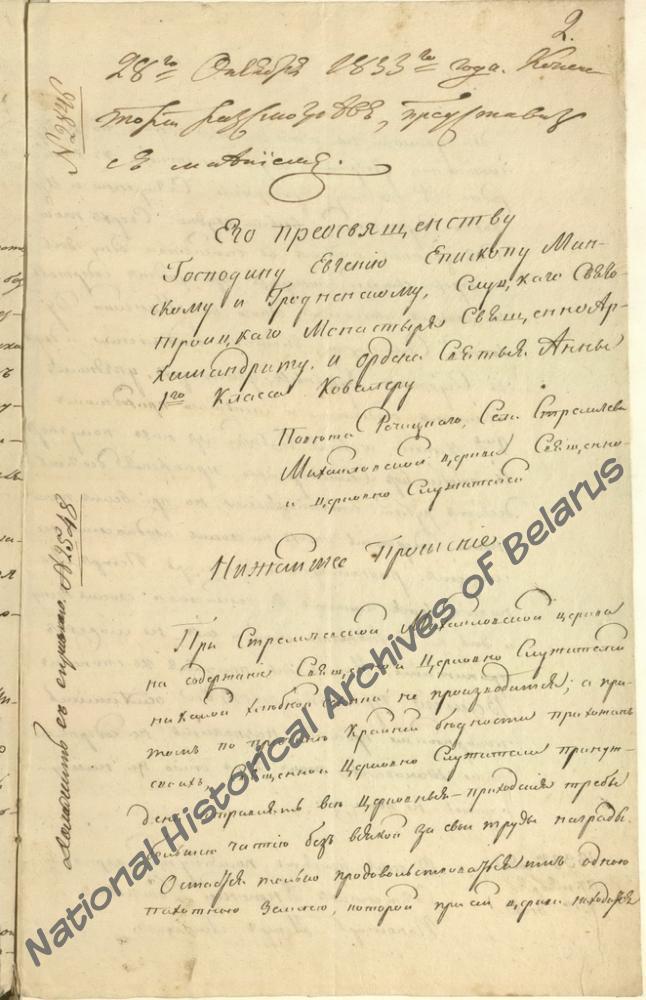 2.
28го Октября 1833го года. Консис
торія разсмотрѣвъ, представитъ
съ мнѣніемъ.
N 2846
Его преосвященству
Господину Евгенію Епископу Мин-
скому и Гродненскому, Слуцкаго Свѣто-
троицкаго Монастыря Священно Ар-
химандриту, и ордена Святыя Анны
1го Класса Ковалеру
Повѣта Рѣчицкаго, Сел. Стреличева
Михайловской церкви Священно-
и церковно Служителей
Нижайшее Прошеніе
При Стреличевской Михайловской церкви
на содержаніе Свящ. и Церковно Служителей
никакой не производится; а при
томъ по причинѣ Крайней бѣдности прихожанъ
своихъ, Священно и Церковно Служители принуж-
дены отправлять всѣ Церковныя приходскія требы
большею частію безъ всякой за свои труды награды.
Остается только продовольствоваться имъ одною
пахотною Землею, которой при сей церкви находится
Доложить съ справкою. N 2548
National Historical Archives of Belarus